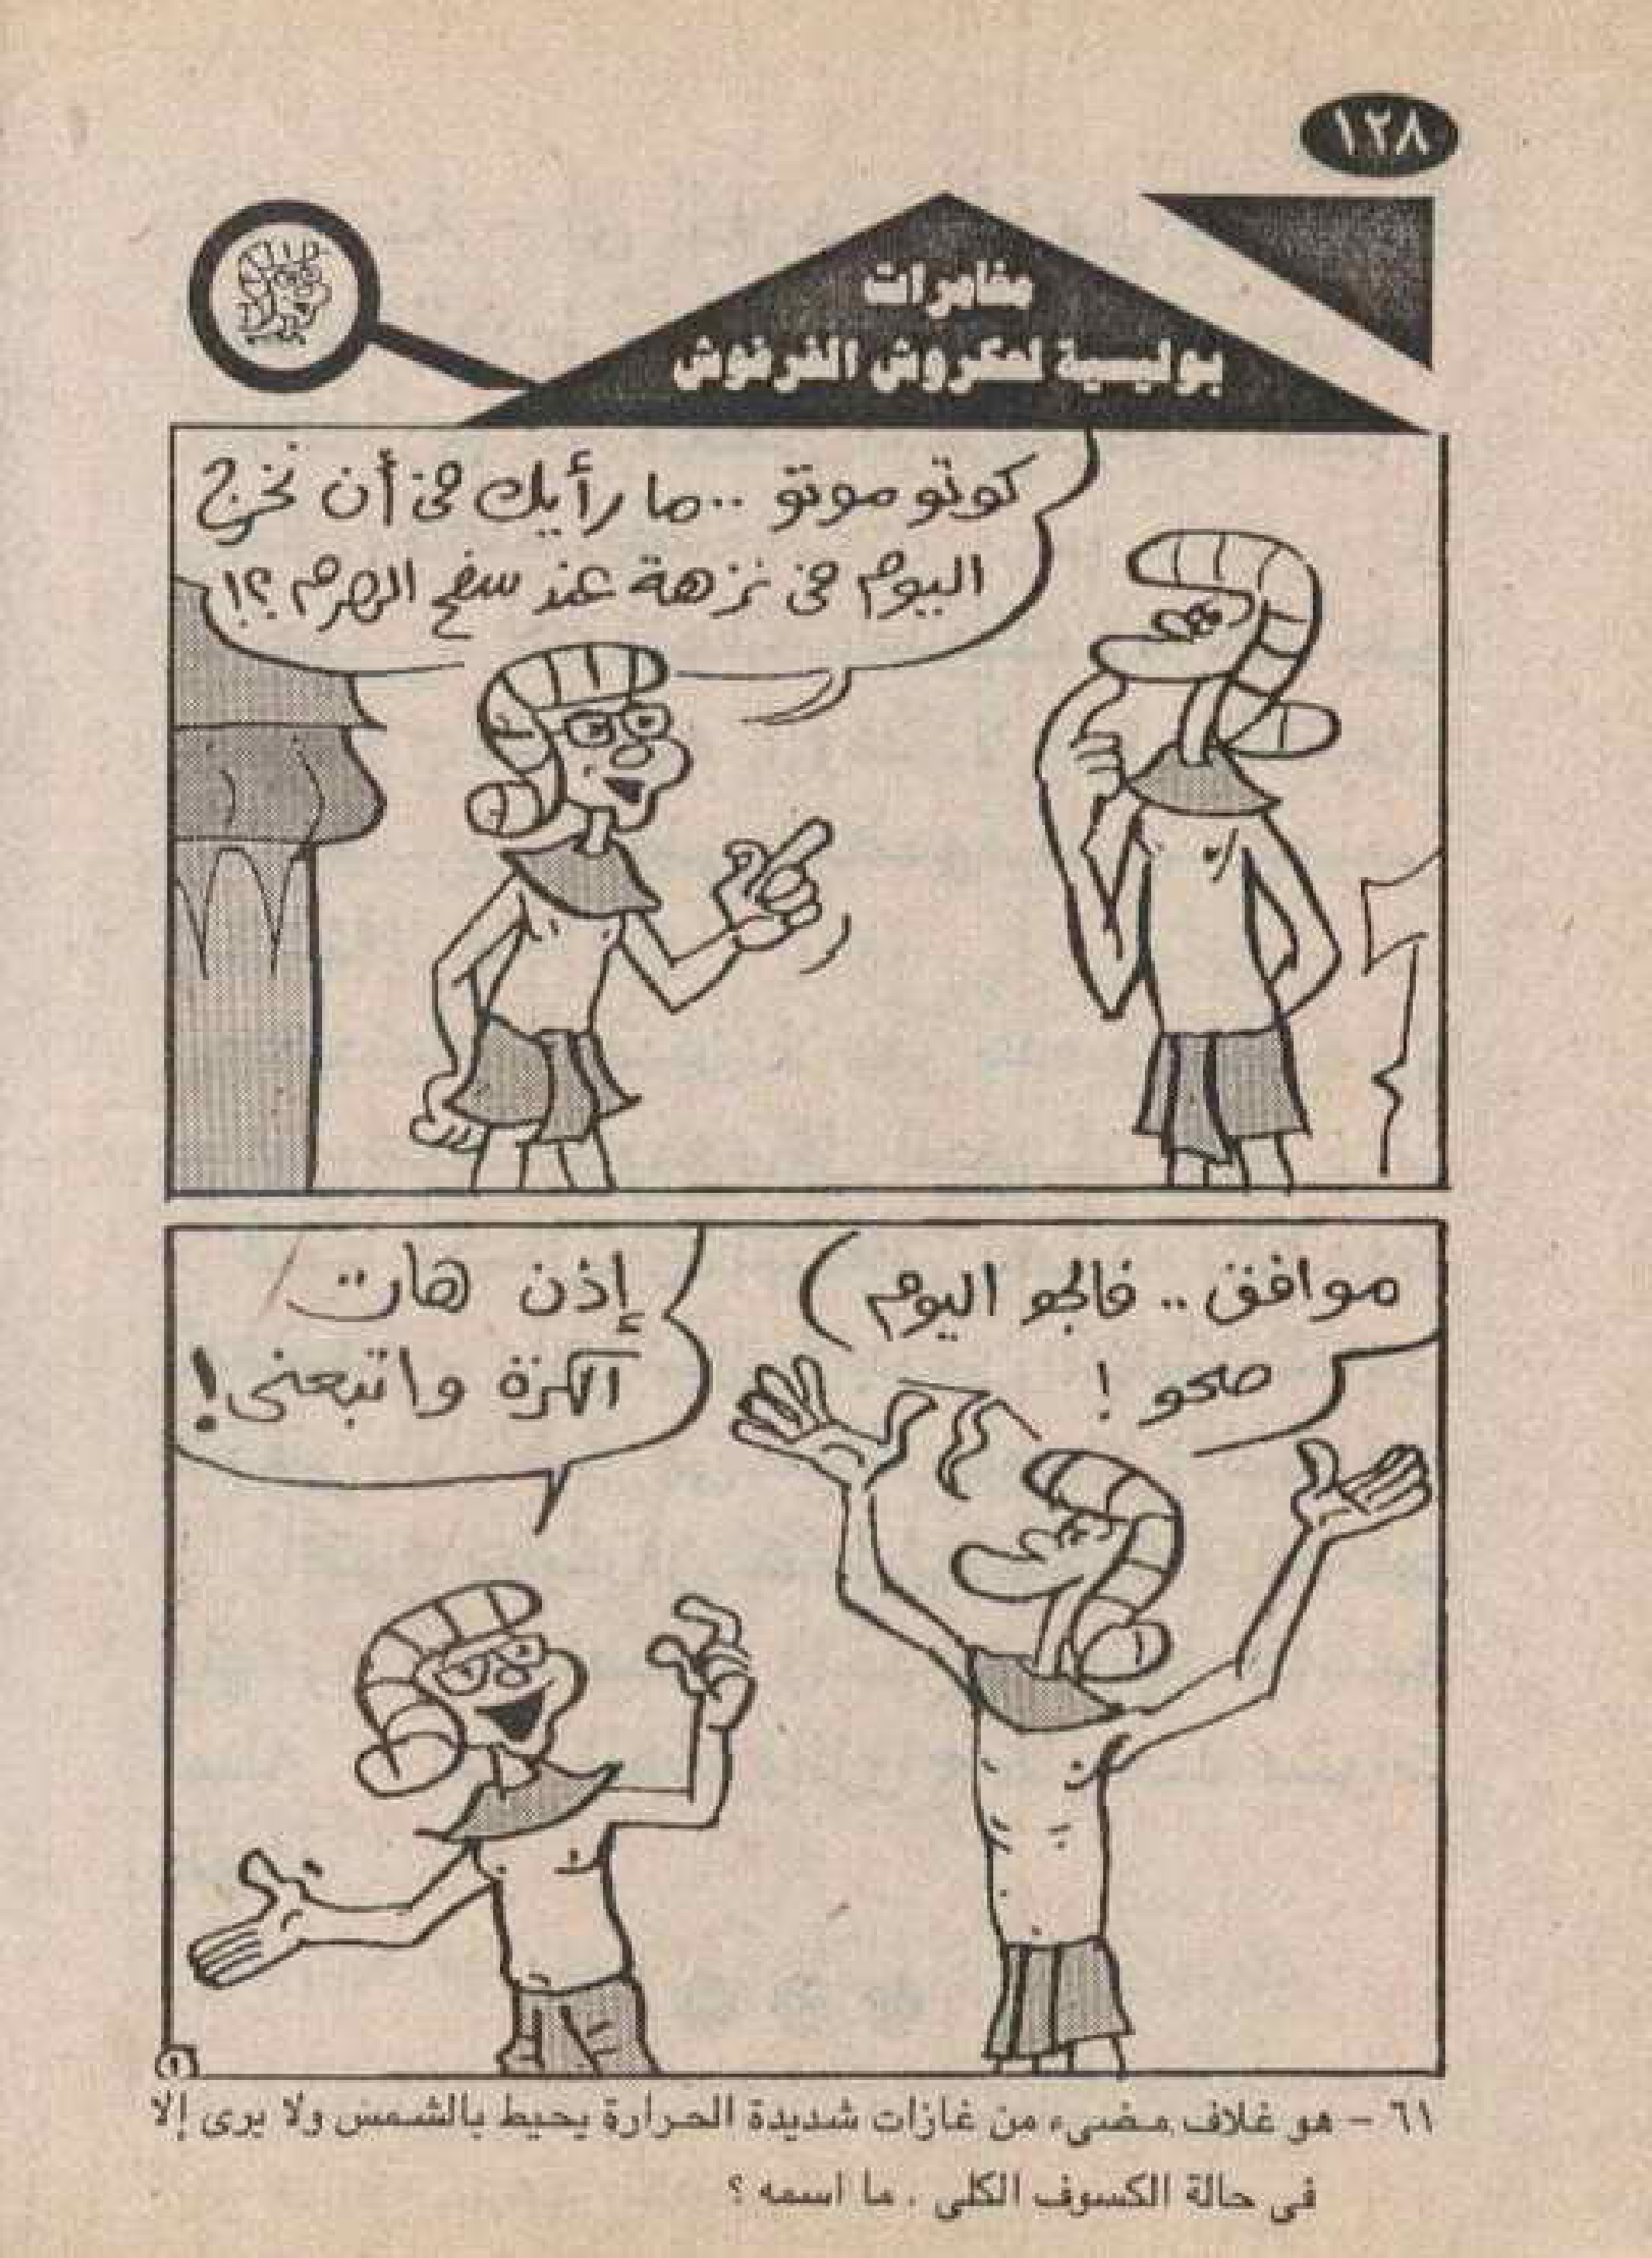 ١٢٨
مغامرات
بوليسية لمكروش الفرفوش
كوتو موتو .. ما رأيك فى أن نخرج
اليوم فى نزهة عند سفح الهرم ؟!
موافق .. فالجو اليوم
صحو !
إذن هات
الكرة واتبعنى !
١
٦١ - هو غلاف مضىء من غازات شديدة الحرارة يحيط بالشمس ولا يرى إلا
فى حالة الكسوف الكلى . ما اسمه ؟